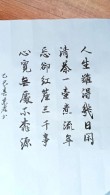 人生难得几日闲
清茶一壶煮流年
忘却红尘三千事
心宽无处不桃源